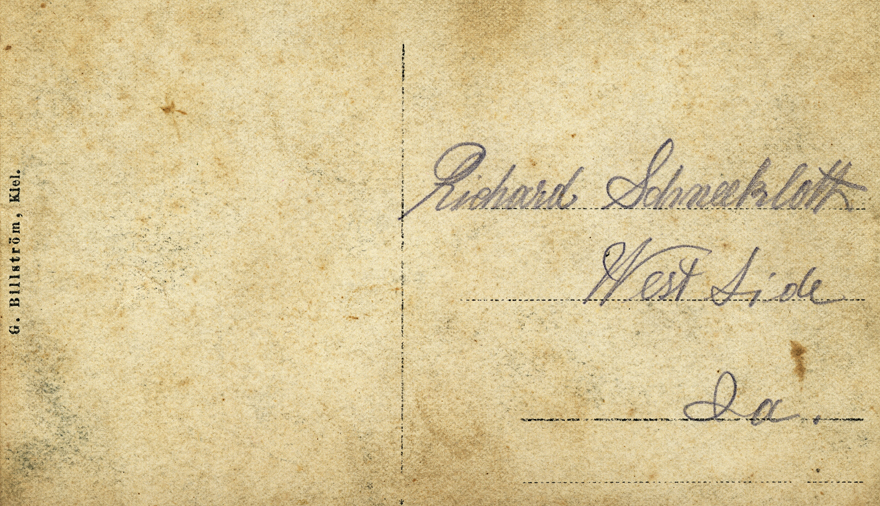 G. Billström, Kiel.
Richard Schneekloth
West Side
Ia.